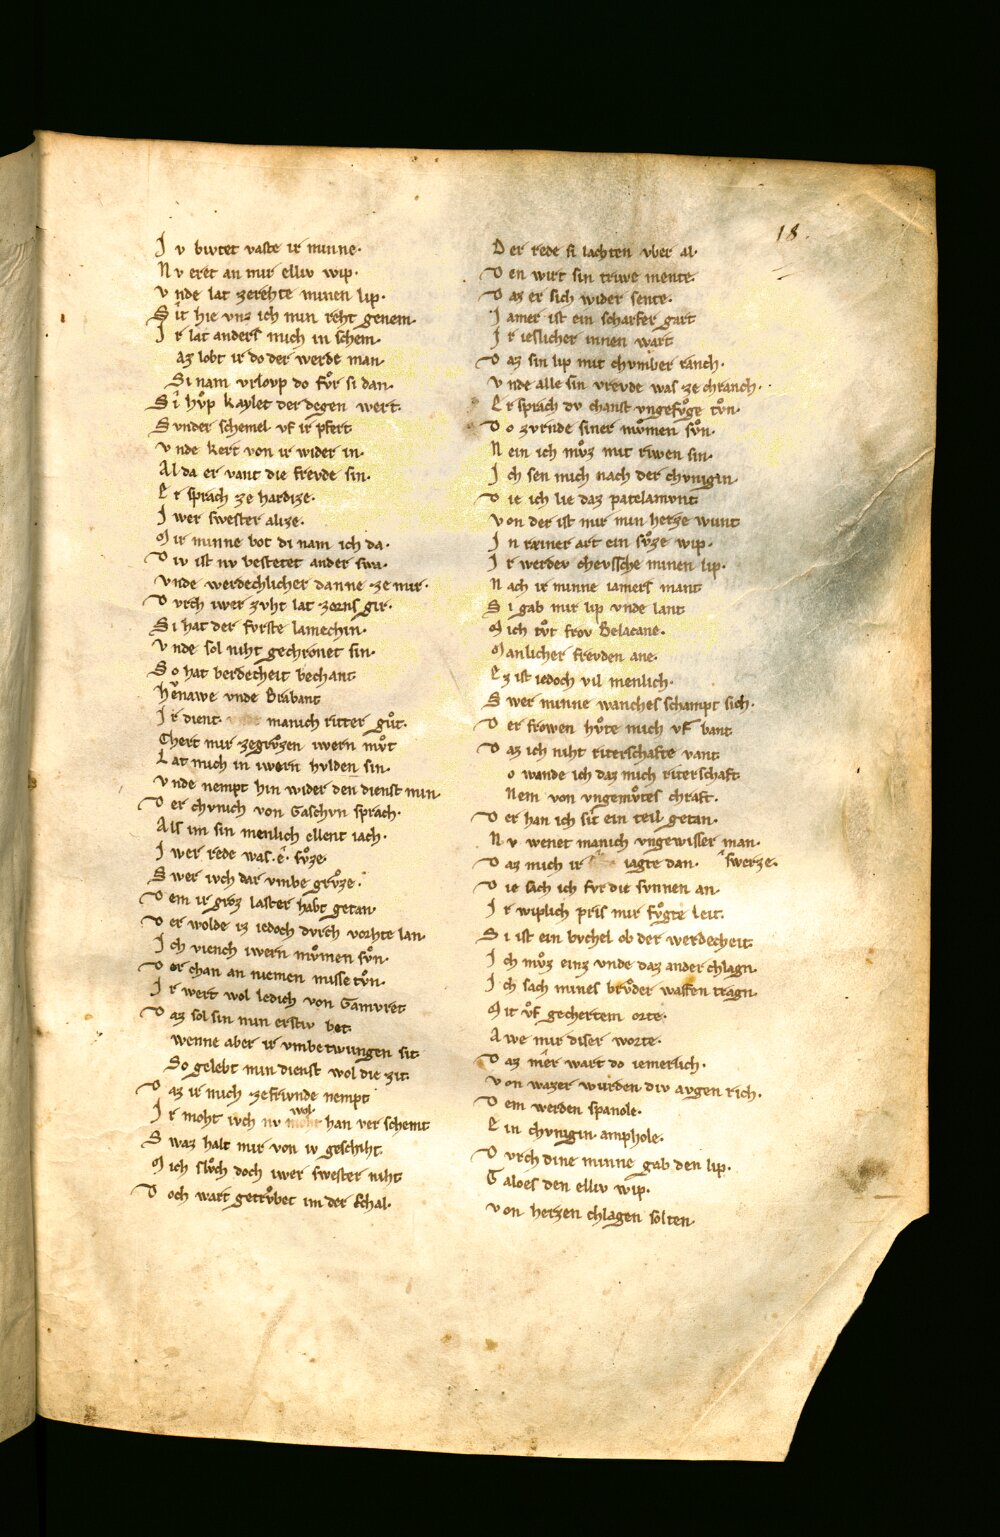 18.
I v bivtet vaste ir minne·
N v eret an mir elliv wip·
V nde lat zerehte minen lip·
S it hie vnz ich min reht genem·
I r lat anders mich in schem·
az lobt ir do der werde man·
Si nam vrlovp do fvͦr si dan·
S i hvͦp kaylet der degen wert·
S vnder schemel vf ir pfert
V nde kert von ir wider in·
Al da er vant die frevde sin·
E r sprach ze hardize·
I wer swester alize·
M ir minne bot di nam ich da·
D iv ist nv bestetet ander swa·
Vnde werdechlicher danne ze mir·
D vrch iwer zvht lat zorns gir·
Si hat der fvrste lamechin·
V nde sol niht gechrônet sin·
S o hat berdecheit bechant
Hênawe vnde Brabant
I r dient manich ritter gvͦt·
Chert mir zegrvͦzen iwern mvͦt
L at mich in iwern hvlden sin·
V nde nempt hin wider den dienst min·
D er chvnich von Gaschvn sprach·
Als im sin menlich ellent iach·
I wer rede was ê· svͦze·
S wer ivch dar vmbe grvͦze·
D em ir groz laster habt getan·
D er wolde iz iedoch dvrch vorhte lan·
I ch viench iwern mvͦmen svͦn·
D er chan an niemen misse tvͦn·
I r wert wol ledich von Gamvret
D az sol sin min erstiv bet·
wenne aber ir vmbetwungen sit
So gelebt min dienst wol die zit·
D az ir mich zefrivnde nempt
I r moht ivch nv wol han verschemt
S waz halt mir von iv geschiht
M ich slvͦch doch iwer swester niht
D och wart getrvͦbet im der schal·
D er rede si lachten vber al·
D en wirt sin triwe mente·
D az er sich wider sente·
I amer ist ein scharfer gart
I r ieslicher innen wart
D az sin lip mit chvmber ranch·
V nde alle sin vrevde was ze chranch·
E r sprach dv chanst vngefvͦge tvͦn·
D o zvrnde siner mvͦmen svͦn·
N ein ich mvͦz mit riwen sin·
I ch sen mich nach der chvnigin·
D ie ich lie daz patelamvnt
V on der ist mir min herze wunt
I n ræiner art ein svͦze wip·
I r werdev chevssche minen lip·
N ach ir minne iamers mant
S i gab mir lip vnde lant
M ich tvͦt frov Belacane·
Manlicher frevden ane·
E z ist iedoch vil menlich·
S wer minne wanches schampt sich·
D er frowen hvͦte mich vf bant
D az ich niht riterschafte vant
o wande ich daz mich riterschaft
Nem von vngemvͦtes chraft·
D er han ich sit ein teil getan·
N v wenet manich vngewisser man·
D az mich ir iagte dan· swerze·
D ie sach ich fvr die svnnen an·
I r wiplich pris mir fvͦgte leit·
S i ist ein bvchel ob der werdecheit
I ch mvͦz einz vnde daz ander chlagn·
I ch sach mines brvͦder waffen tragn·
M it vͦf gechertem orte·
A we mir diser worte·
D az mêr wart do iemerlich·
V on wazer wurden div avgen rich·
D em werden spanole·
E in chvnigin amphole·
D vrch dine minne gab den lip·
G aloes den elliv wip·
V on herzen chlagen solten·